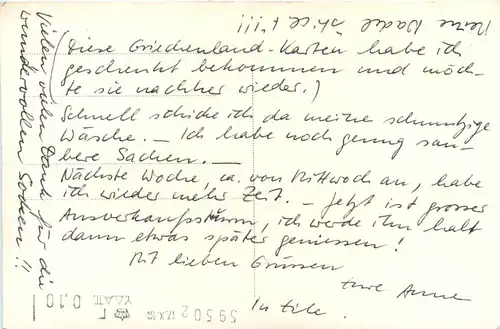 (Diese Griechenland-Karten habe ich
geschenkt bekommen und möch-
te sie nachher wieder.)
Schnell schicke ich da meine schmutzige
Wäsche. — Ich habe noch genug sau-
bere Sachen. —
Nächste Woche, ca. von Mittwoch an, habe
ich wieder mehr Zeit. — Jetzt ist grosser
Ausverkaufssturm, ich werde ihn halt
dann etwas später geniessen!
Mit lieben Grüssen
Eure Anne
In Eile.
Vielen, vielen Dank für die
wundervollen Socken!!
Meine
59502
0,10